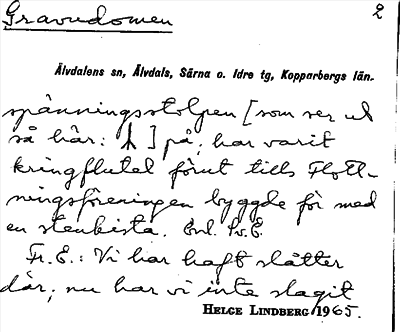 Gravudomen 2
Älvdalens sn, Älvdals, Särna o. Idre tg, Kopparbergs län.
spänningsstolpen [som ser ut
så här: ] på, har varit
kringflutet förut tills Flott-
ningsföreningen byggde för med
en stenkista. Enl. Lv.E.
Fr. E.: Vi har haft slåtter
där, nu har vi inte slagit
HELGE LINDBERG 1965.